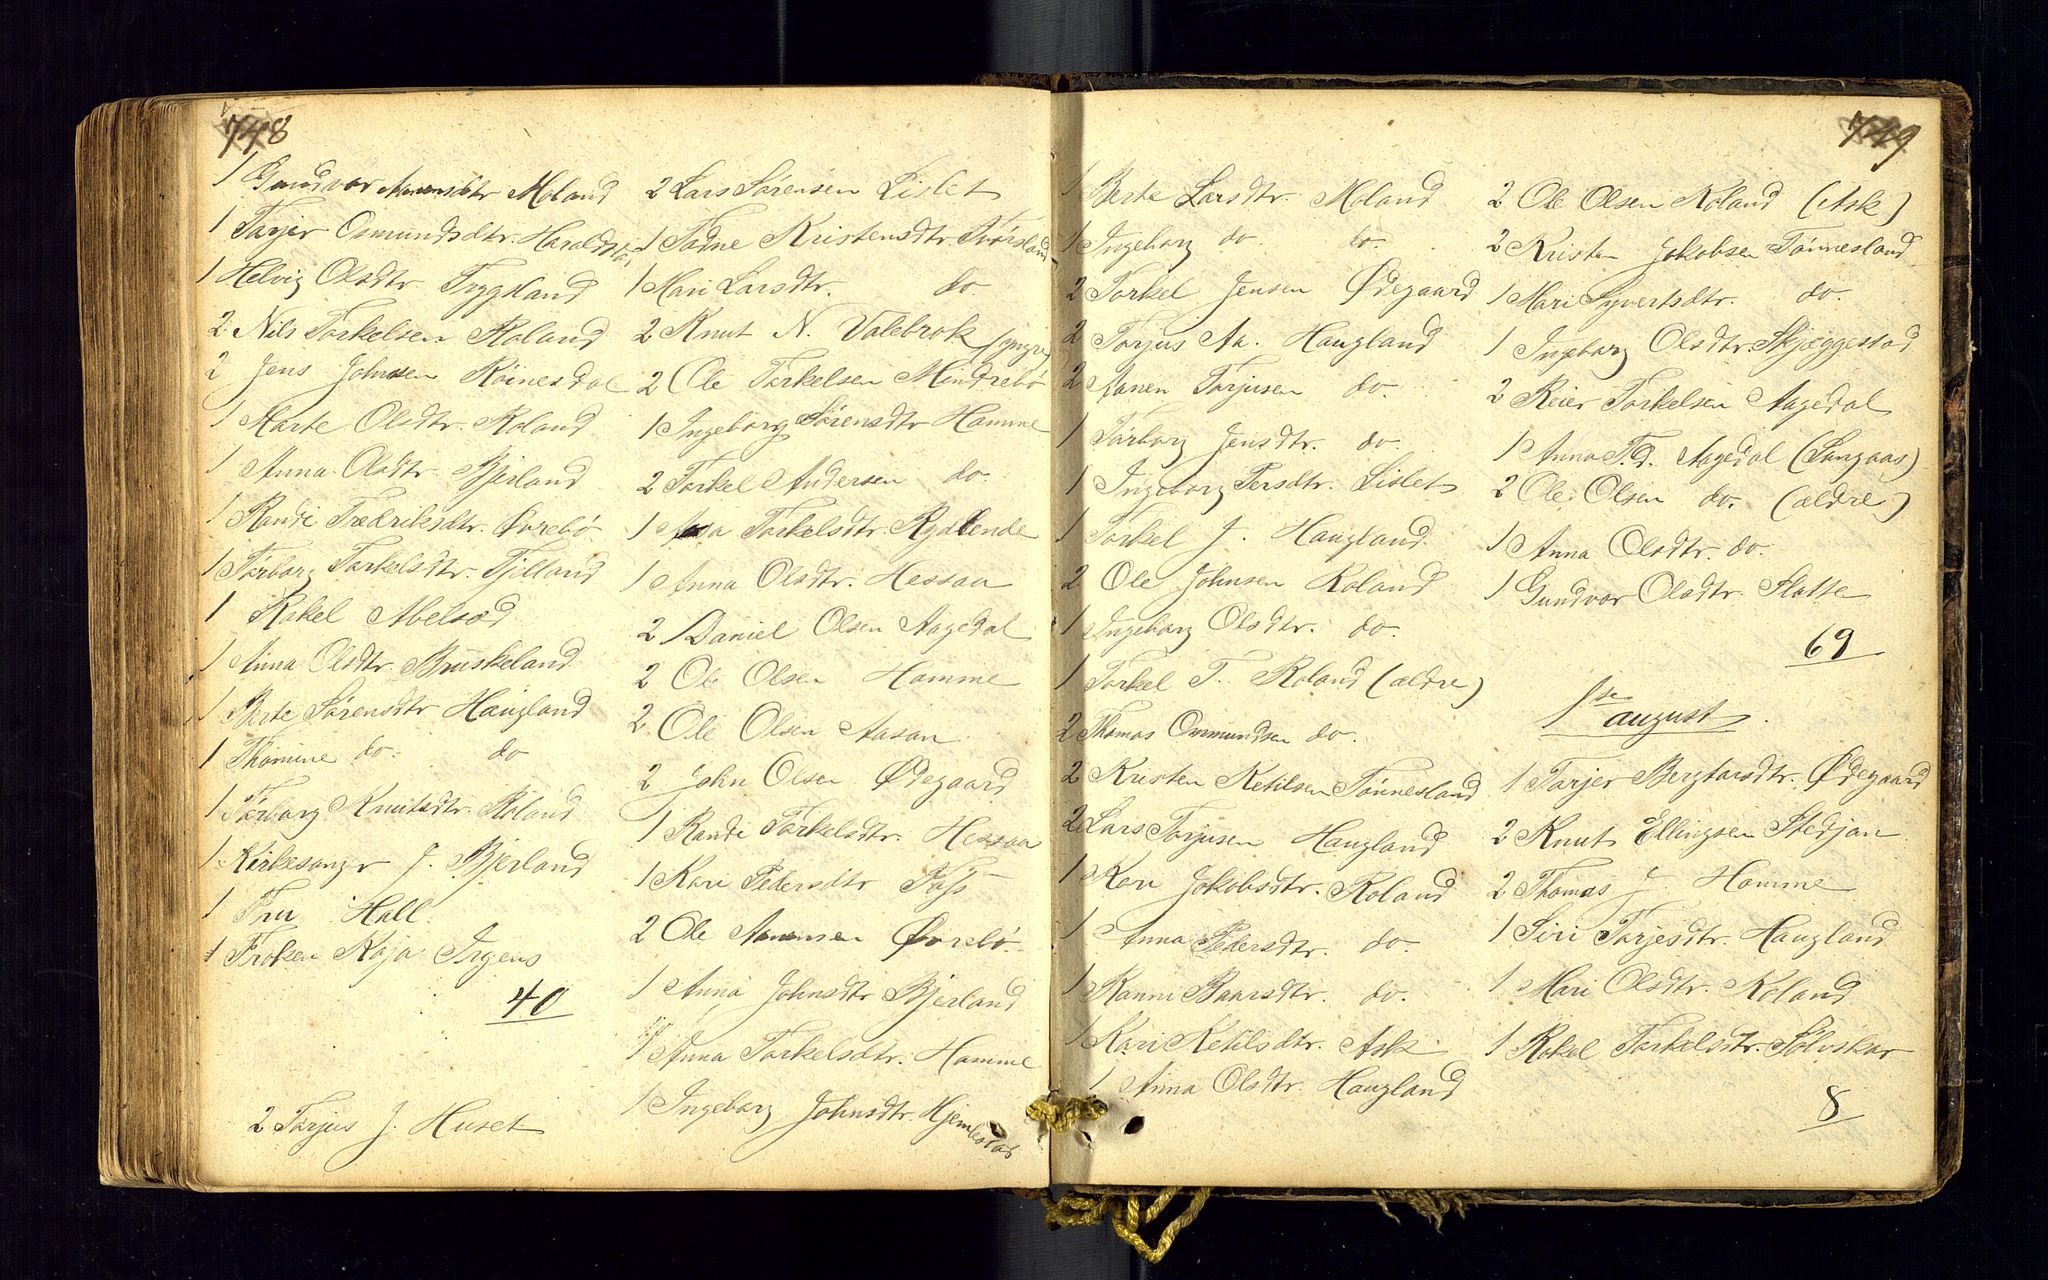 748
1 Gundvor Aanensdtr Moland
1 Tarjer Osmundsdtr. Haraldstad
1 Helvig Olsdtr Trygsland
2 Nils Torkelsen Roland
2 Jens Johnsen Röinesdal
1 Marte Olsdtr. Roland
1 Anna Olsdtr. Bjerland
1 Randi Fredriksdtr. Øvrebø
1 Tørborg Torkelsdtr. Fjilland
1 Rakel Abelsæd
1 Anna Olsdtr. Bruskeland
1 Berte Sørensdtr Haugland
1 Thomine do. do
1 Tørborg Knutsdtr. Roland
1 Kirkesanger J. Bjerland
1 Fru Hall.
1 Frøken Kaja Irgens
40
2 Tarjus J. Huset
2 Lars Sørensen Lislet
1 Tadne Kristensdtr Frørsland
1 Mari Larsdtr. do.
2 Knut N. Valebrok (yngre)
2 Ole Torkelsen Mindrebø
1 Ingeborg Sørensdtr Homme
2 Torkel Andersen do.
1 Aasa Torkelsdtr. Rydlende
1 Anna Olsdtr. Hessaa
2 Daniel Olsen Aagedal
2 Ole Olsen Homme
2 Ole Olsen Aasan
2 John Olsen Ødegaard
1 Randi Torkelsdtr. Hessaa
1 Kari Pedersdtr Foss
2 Ole Aanensen Øvrebø
1 Anna Johnsdtr Bjerland
1 Anna Torkelsdtr. Homme
1 Ingeborg Johnsdtr. Hjemlestad
749
1 Berte Larsdtr. Moland
1 Ingeborg do. do.
2 Torkel Jensen Ødegaard
2 Tarjus Aa. Haugland
2 Aanen Tarjusen do.
1 Tørborg Jensdtr. do.
1 Ingeborg Persdtr. Lislet
1 Torkel J. Haugland
2 Ole Johnsen Roland
1 Ingeborg Olsdtr. do.
1 Torkel T. Roland (ældre)
2 Thomas Ommundsen do.
2 Kristen Ketilsen Tønnesland
2 Lars Tarjusen Haugland
1 Kari Jakobsdtr. Roland
1 Anna Pedersdtr. do.
1 Ranni Baarsdtr. do.
1 Kari Ketilsdtr. Ask
1 Anna Olsdtr. Haugland
2 Ole Olsen Roland (Ask)
2 Kristen Jakobsen Tønnesland
1 Mari Syvertsdtr. do.
1 Ingeborg Olsdtr. Skjæggestad
2 Reier Torkelsen Aagedal
1 Anna T.d. Aagedal (Langaas)
2 Ole Olsen do. (ældre)
1 Anna Olsdtr. do.
1 Gundvor Olsdtr. Slatte
69
1ste august
1 Tarjer Bergtorsdtr. Ødegaard
2 Knut Ellingsen Stedjan
2 Thomas J. Homme
1 Siri Tarjesdtr. Haugland
1 Mari Olsdtr. Roland
1 Rakel Torkelsdtr. Sølvskar
8